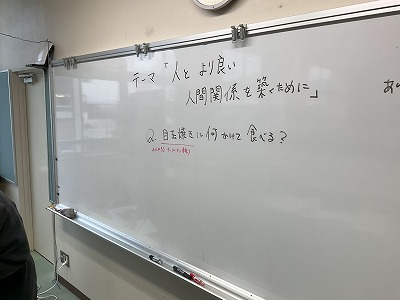 テーマ「人と より良い
人間関係を築くために」
Q. 目玉焼きに何かけて食べる？